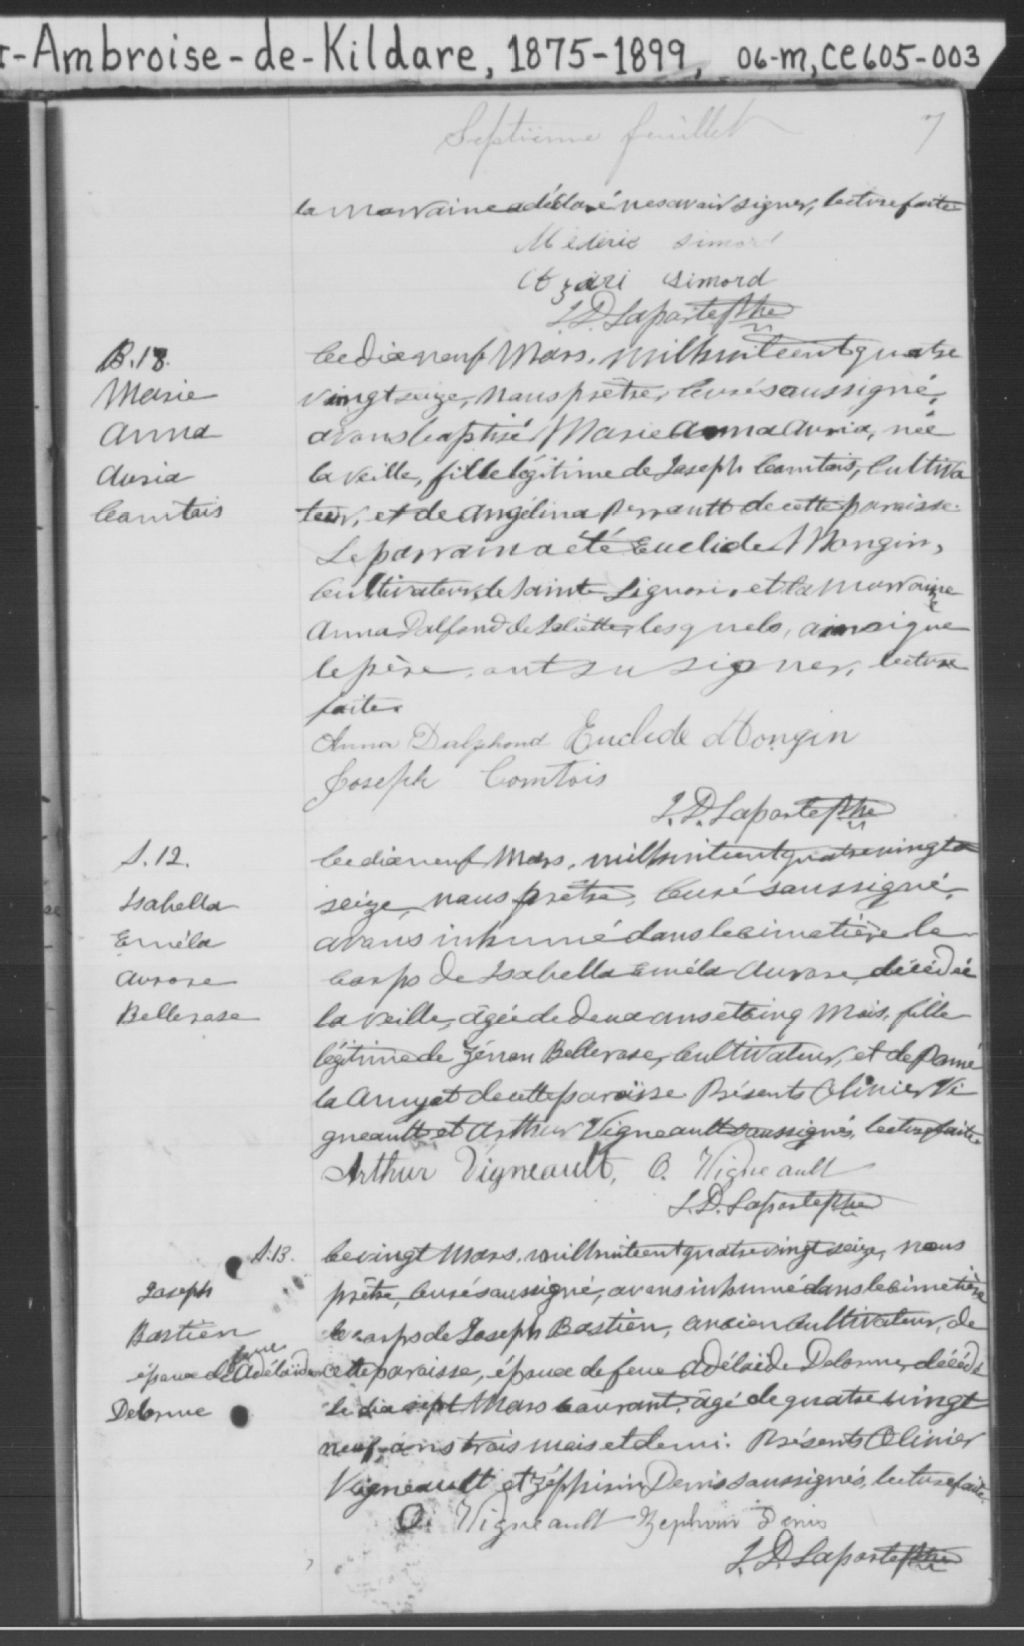 t-Ambroise-de-Kildare, 1875-1899, 06-M, CE605-003
Septième feuillet 7
la marraine a déclaré ne savoir signer, lecture faite
Médéric Simard
Simard
J. D. Laporte Ptre
B.18. Ce dix neuf Mars, mil huit cent quatre
Marie vingt seize, nous prêtre, Curé soussigné,
Anna avons baptisé Marie Anna Auria, née
Auria la veille, fille légitime de Joseph Comtois, Cultiva
Comtois teur, et de Angélina Perrault de cette paroisse.
Le parrain a été Euclide Mongin,
Cultivateur, de Saint Liguori, et la marraine
Anna Dalfond de Joliette, lesquels, ainsi que
le père, ont su signer, lecture
faite.
Anna Dalphond Euclide Mongin
Joseph Comtois
J. D. Laporte Ptre
S.12. Ce dix neuf Mars, mil huit cent quatre vingt
Isabella seize, nous prêtre, Curé soussigné,
Eméla avons inhumé dans le cimetière le
Aurore corps de Isabella Eméla Aurore, décédée
Bellerose la veille, âgée de deux ans et cinq mois, fille
légitime de Zénon Bellerose, Cultivateur, et de Pamé
la Amyot de cette paroisse. Présents Olivier Vi
gneault et Arthur Vigneault soussignés, lecture faite.
Arthur Vigneault, O. Vigneault
J. D. Laporte Ptre
S.13. Ce vingt Mars, mil huit cent quatre vingt seize, nous
Joseph prêtre, Curé soussigné, avons inhumé dans le cimetière
Bastien le corps de Joseph Bastien, ancien Cultivateur, de
époux de feue Adélaïde cette paroisse, époux de feue Adélaïde Delorme, décédé
Delorme le dix sept Mars courant, âgé de quatre vingt
neuf ans trois mois et demi. Présents Olivier
Vigneault et Zéphirin Denis soussignés, lecture faite.
O. Vigneault Zephirin Denis
J. D. Laporte Ptre